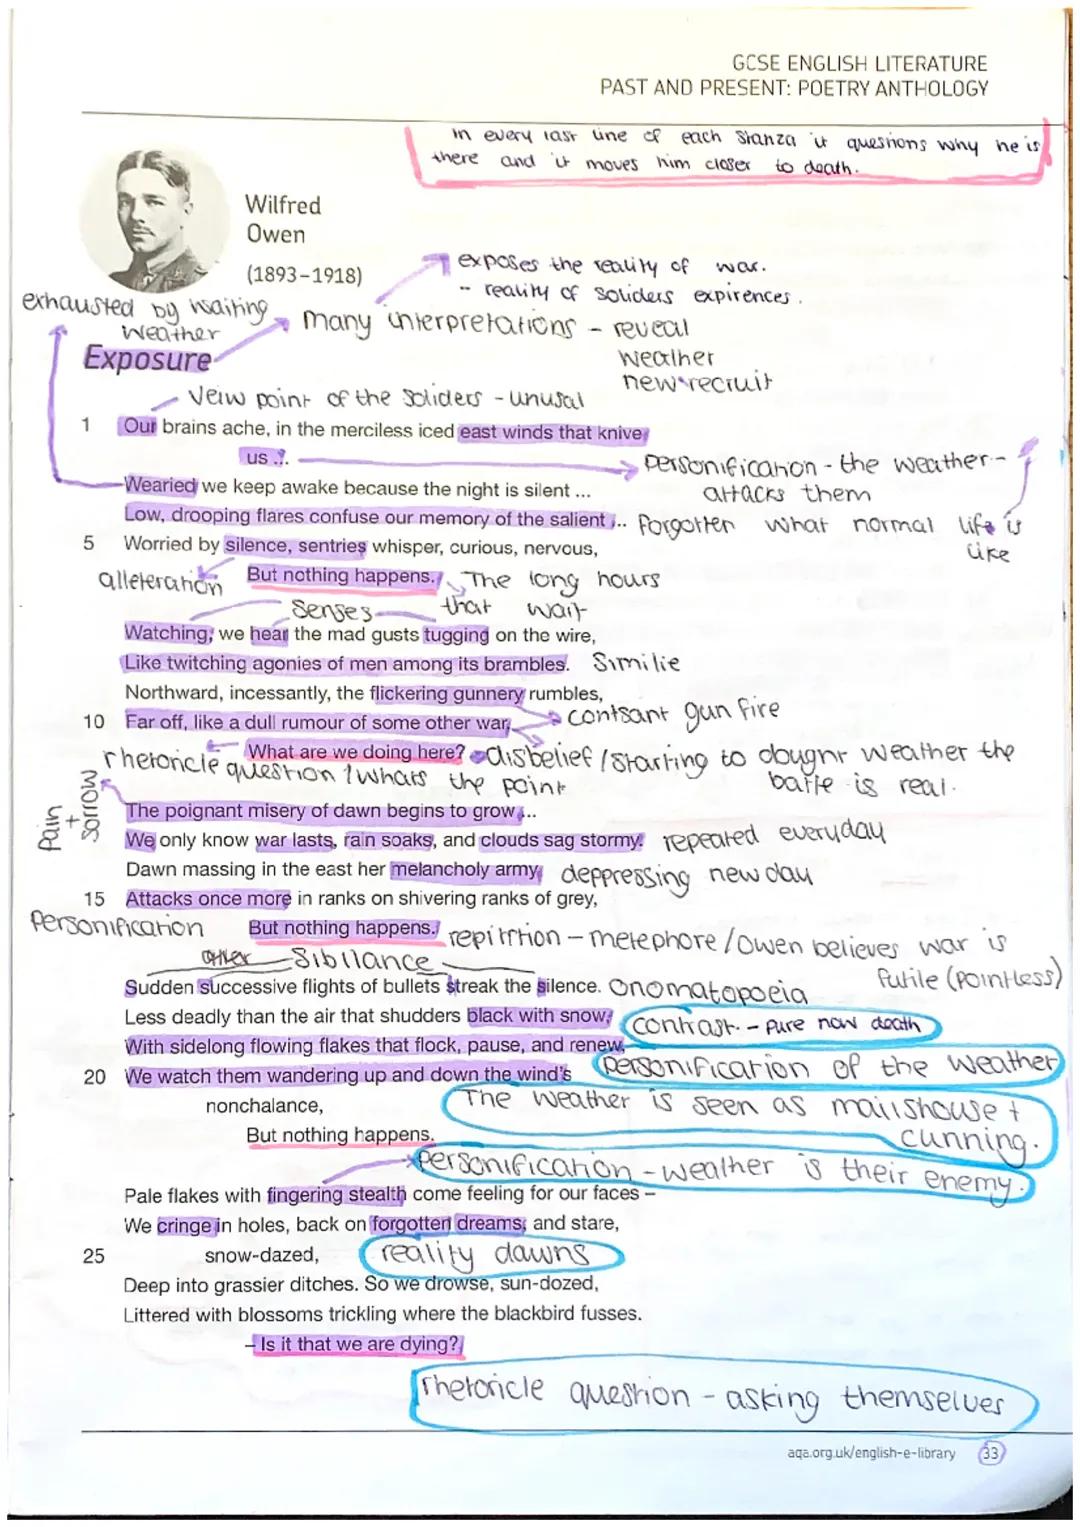 GCSE ENGLISH LITERATURE
PAST AND PRESENT: POETRY ANTHOLOGY
in every last line of each Stanza it questions why he is
there and it moves him closer to death.
Wilfred
Owen
(1893–1918)
exposes the reality of war.
- reality of soliders expirences.
exhausted by waiting
weather
many interpretations - reveal
weather
new recruit
Exposure
Veiw point of the soliders - unusal
1 Our brains ache, in the merciless iced east winds that knive
us ...
personification - the weather -
attacks them
Wearied we keep awake because the night is silent ...
Low, drooping flares confuse our memory of the salient ...
forgotten what normal life is
like
5 Worried by silence, sentries whisper, curious, nervous,
alleteration
But nothing happens.
The long hours
that wait
Senses
Watching, we hear the mad gusts tugging on the wire,
Like twitching agonies of men among its brambles.
Similie
Northward, incessantly, the flickering gunnery rumbles,
10 Far off, like a dull rumour of some other war,
contsant gun fire
What are we doing here?
disbelief / starting to dougnt weather the
batte is real.
rhetoricle question / whats the point
Pain
+
sorrow
The poignant misery of dawn begins to grow ...
We only know war lasts, rain soaks, and clouds sag stormy.
repeated everyday
Dawn massing in the east her melancholy army
deppressing new day
15 Attacks once more in ranks on shivering ranks of grey,
Personification
But nothing happens.
repitition - metephore / Owen believes war is
futile (pointless)
Sibilance
Sudden successive flights of bullets streak the silence.
Onomatopoeia
Less deadly than the air that shudders black with snow,
contrast - pure now death
With sidelong flowing flakes that flock, pause, and renew,
personification of the weather
20 We watch them wandering up and down the wind's
nonchalance,
The weather is seen as
cunning.
But nothing happens.
personification - weather is their enemy.
Pale flakes with fingering stealth come feeling for our faces –
We cringe in holes, back on forgotten dreams, and stare,
25 snow-dazed,
reality dawns
Deep into grassier ditches. So we drowse, sun-dozed,
Littered with blossoms trickling where the blackbird fusses.
– Is it that we are dying?
rhetoricle question - asking themselves
aqa.org.uk/english-e-library 33